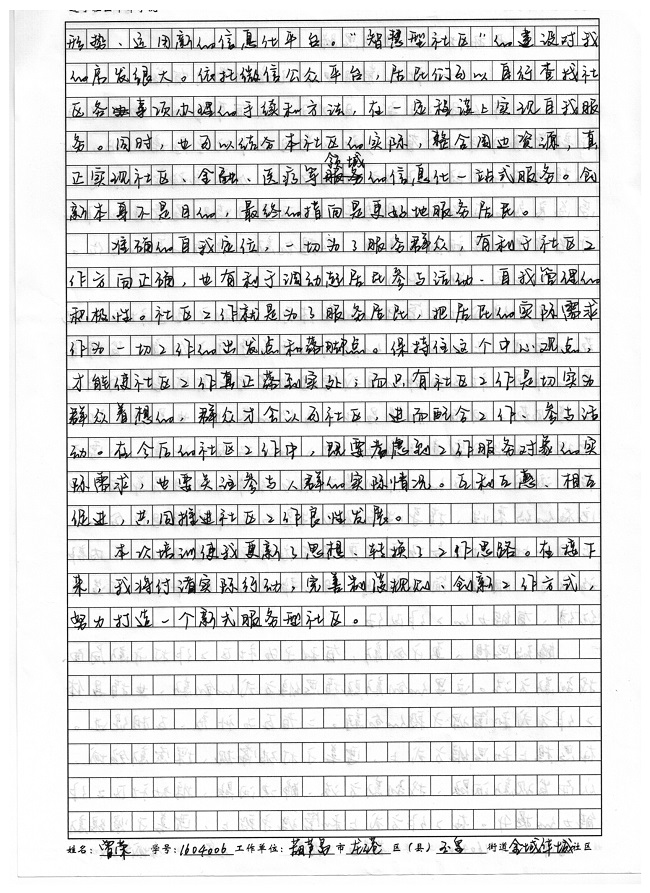 形势、运用新的信息化平台。“智慧型社区”的建设对我
的启发很大。依托微信公众平台，居民们可以自行查找社
区各类事项办理的手续和方法，在一定程度上实现自我服
务。同时，也可以结合本社区的实际，整合周边资源，真
正实现社区、金融、医疗等领域的信息化一站式服务。创
新本身不是目的，最终的指向是更好地服务居民。
准确的自我定位，一切为了服务群众，有利于社区工
作方向正确，也有利于调动起居民参与活动、自我管理的
积极性。社区工作就是为了服务居民，把居民的实际需求
作为一切工作的出发点和落脚点。保持住这个中心观点，
才能使社区工作真正落到实处；而只有社区工作是切实为
群众着想的，群众才会认可社区，进而配合工作、参与活
动。在今后的社区工作中，既要考虑到工作服务对象的实
际需求，也要关注参与人群的实际情况。互利互惠、相互
促进，共同推进社区工作良性发展。
本次培训使我更新了思想、转换了工作思路。在接下
来，我将付诸实际行动，完善制度规则、创新工作方式，
努力打造一个新式服务型社区。
姓名：曾荣 学号：1604006 工作单位：葫芦岛市龙港区（县）玉皇街道金域华城社区